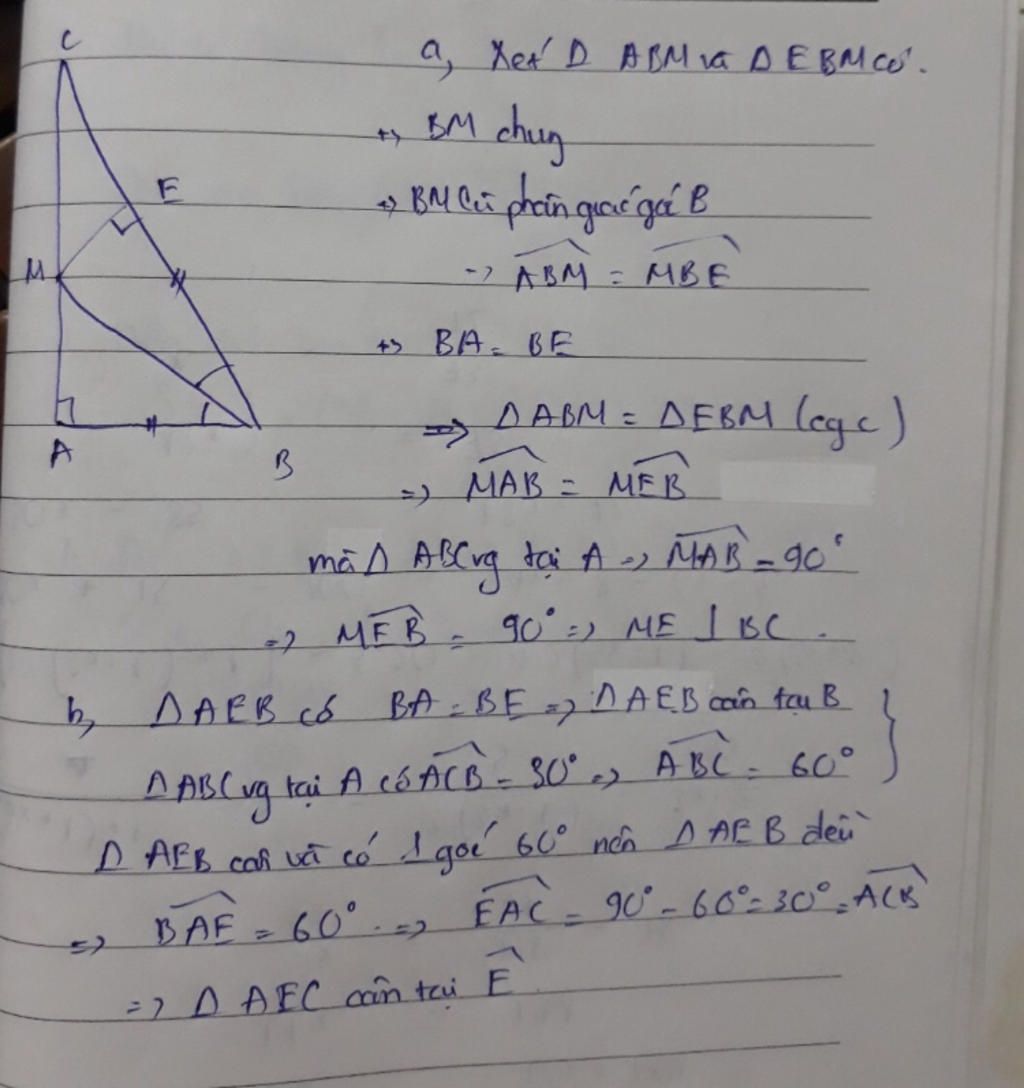 C
E
M
A
B
a, Xét Δ ABM và Δ EBM có.
+) BM chung
+) BM là phân giác góc B
-> \widehat{ABM} = \widehat{MBE}
+) BA = BE
=> Δ ABM = Δ EBM (cgc)
=> \widehat{MAB} = \widehat{MEB}
mà Δ ABC vg tại A => \widehat{MAB} = 90°
=> \widehat{MEB} = 90° => ME ⊥ BC .
b, Δ AEB có BA = BE => Δ AEB cân tại B
Δ ABC vg tại A có \widehat{ACB} = 30° => \widehat{ABC} = 60° }
Δ AEB cân và có 1 góc 60° nên Δ AEB đều
=> \widehat{BAE} = 60° . => \widehat{EAC} = 90° - 60° = 30° = \widehat{ACB}
=> Δ AEC cân tại \widehat{E}